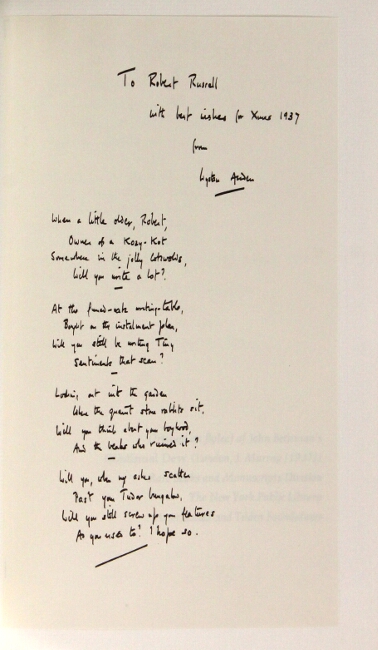 To Robert Russell
with best wishes for Xmas 1937
from
Wystan Auden
When a little older, Robert,
Owner of a Kozy-Kot
Somewhere in the jolly Cotswolds,
Will you write a lot?
At the fumed-oak writing-table,
Bought on the instalment plan,
Will you still be writing Tiny
Sentiments that scan?
Looking out into the garden
Where the quaint stone rabbits sit,
Will you think about your boyhood,
And the beaks who ruined it?
Will you, when my ashes scatter
Past your Tudor bungalow,
Will you still screw up your features
As you used to? I hope so.